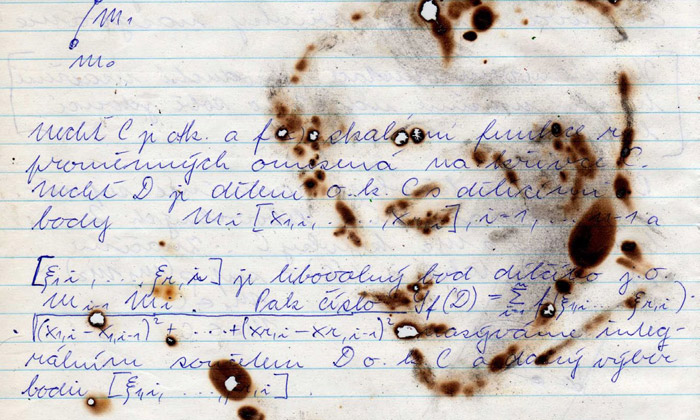 m₁
m₀
Nechť C je ok. a f skalární funkce r
proměnných omezená na křivce C.
Nechť D je dělení o.k. C s dělicími
body mᵢ [x₁,ᵢ, ..., xᵣ,ᵢ], i=1, ... n-1 a
[ξ₁,ᵢ, ..., ξᵣ,ᵢ] je libovolný bod dílčího j.o.
mᵢ₋₁ mᵢ. Pak číslo If(D) = Σ f(ξ₁,ᵢ ... ξᵣ,ᵢ)
. √(x₁,ᵢ-x₁,ᵢ₋₁)² + ... +(xᵣ,ᵢ-xᵣ,ᵢ₋₁)² nazýváme integ-
rálním součtem D o.k. C a daný výběr
bodů [ξ₁,ᵢ, ..., ᵢ].